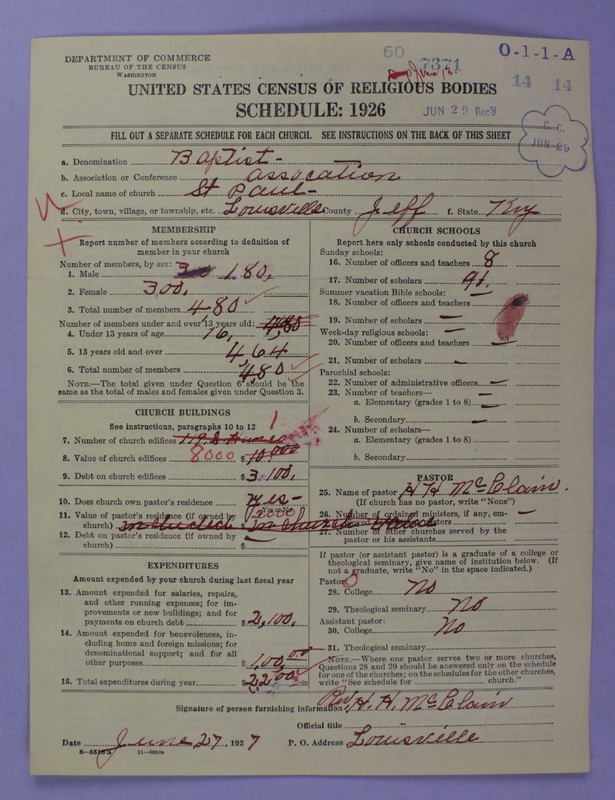 60 7371 O-1-1-A
DEPARTMENT OF COMMERCE
BUREAU OF THE CENSUS
WASHINGTON
14 14
UNITED STATES CENSUS OF RELIGIOUS BODIES
SCHEDULE: 1926
JUN 29 Rec'd
FILL OUT A SEPARATE SCHEDULE FOR EACH CHURCH. SEE INSTRUCTIONS ON THE BACK OF THIS SHEET
C. C.
JUN 29
a. Denomination Baptist-
b. Association or Conference assocation
c. Local name of church St Paul-
d. City, town, village, or township, etc. Louisville County Jeff f. State Ky
MEMBERSHIP
Report number of members according to definition of
member in your church
Number of members, by sex:
1. Male 180,
2. Female 300,
3. Total number of members 480
Number of members under and over 13 years old: 480
4. Under 13 years of age 16,
5. 13 years old and over 464
6. Total number of members 480
NOTE.—The total given under Question 6 should be the
same as the total of males and females given under Question 3.
CHURCH BUILDINGS
See instructions, paragraphs 10 to 12
7. Number of church edifices 1
8. Value of church edifices 8000 $ 10,000
9. Debt on church edifices $ 3,100,
10. Does church own pastor's residence Yes-
Yes or No
11. Value of pastor's residence (if owned by $ 2000
church)
12. Debt on pastor's residence (if owned by
church) $
EXPENDITURES
Amount expended by your church during last fiscal year
13. Amount expended for salaries, repairs,
and other running expenses; for im-
provements or new buildings; and for
payments on church debt $ 2,100,
14. Amount expended for benevolences, in-
cluding home and foreign missions; for
denominational support; and for all
other purposes $ 100,00
15. Total expenditures during year $ 2200
CHURCH SCHOOLS
Report here only schools conducted by this church
Sunday schools:
16. Number of officers and teachers 8
17. Number of scholars 91.
Summer vacation Bible schools:
18. Number of officers and teachers
19. Number of scholars
Week-day religious schools:
20. Number of officers and teachers
21. Number of scholars
Parochial schools:
22. Number of administrative officers
23. Number of teachers—
a. Elementary (grades 1 to 8)
b. Secondary
24. Number of scholars—
a. Elementary (grades 1 to 8)
b. Secondary
PASTOR
25. Name of pastor H. H. McClain.
(If church has no pastor, write "None")
26. Number of ordained ministers, if any, em-
27. Number of other churches served by the
pastor or his assistants
If pastor (or assistant pastor) is a graduate of a college or
theological seminary, give name of institution below. (If
not a graduate, write "No" in the space indicated.)
Pastor:
28. College No
29. Theological seminary No
Assistant pastor:
30. College No
31. Theological seminary
NOTE.—Where one pastor serves two or more churches,
Questions 28 and 29 should be answered only on the schedule
for one of the churches; on the schedules for the other churches,
write "See schedule for church."
Signature of person furnishing information Rev. H. H. McClain
Official title
Date June 27, 1927 P. O. Address Louisville